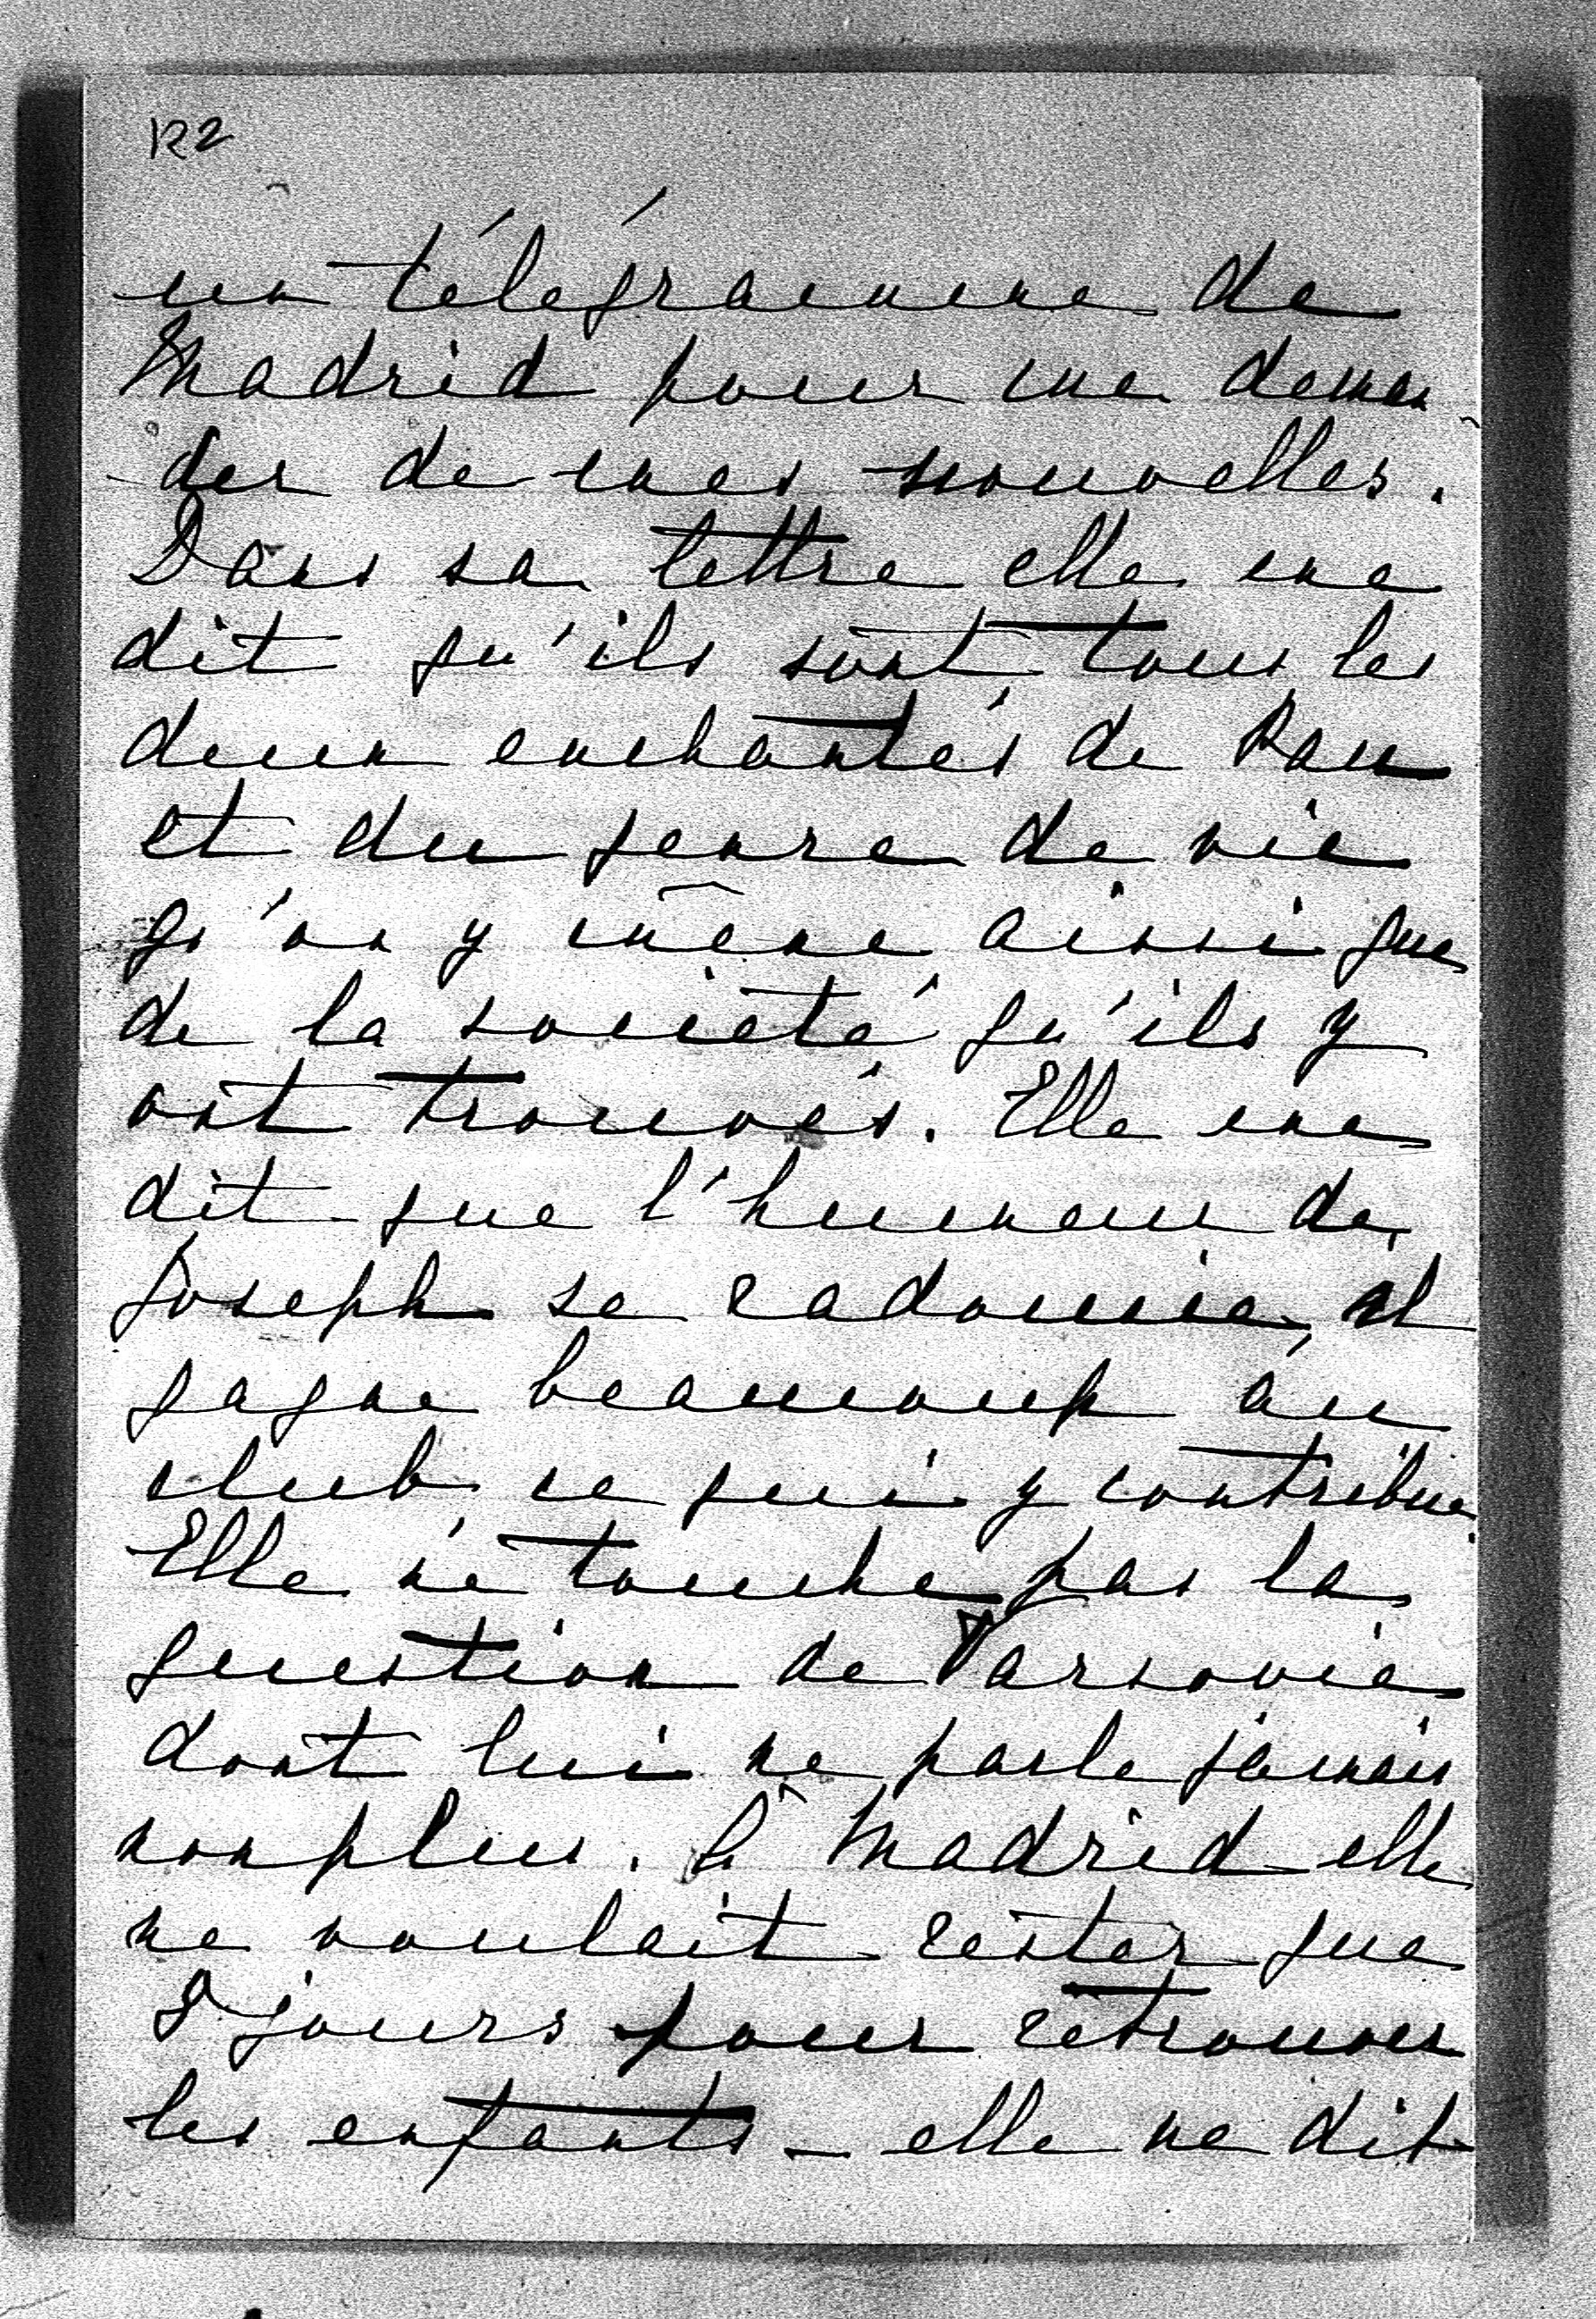 122
un télégramme de
Madrid pour me deman
der de mes nouvelles.
Dans sa lettre elle me
dit qu'ils sont tous les
deux enchantés de Pau
et du genre de vie
qu'on y mêne ainsi que
de la societé qu'ils y
ont trouvés. Elle me
dit que l'humeur de
Joseph se radoucie, il
gagne beaucoup au
club ce qui y contribue.
Elle ne touche pas la
question de Varsovie
dont lui ne parle jamais
non plus. à Madrid elle
ne voulait rester que
8 jours pour retrouver
les enfants – elle ne dit